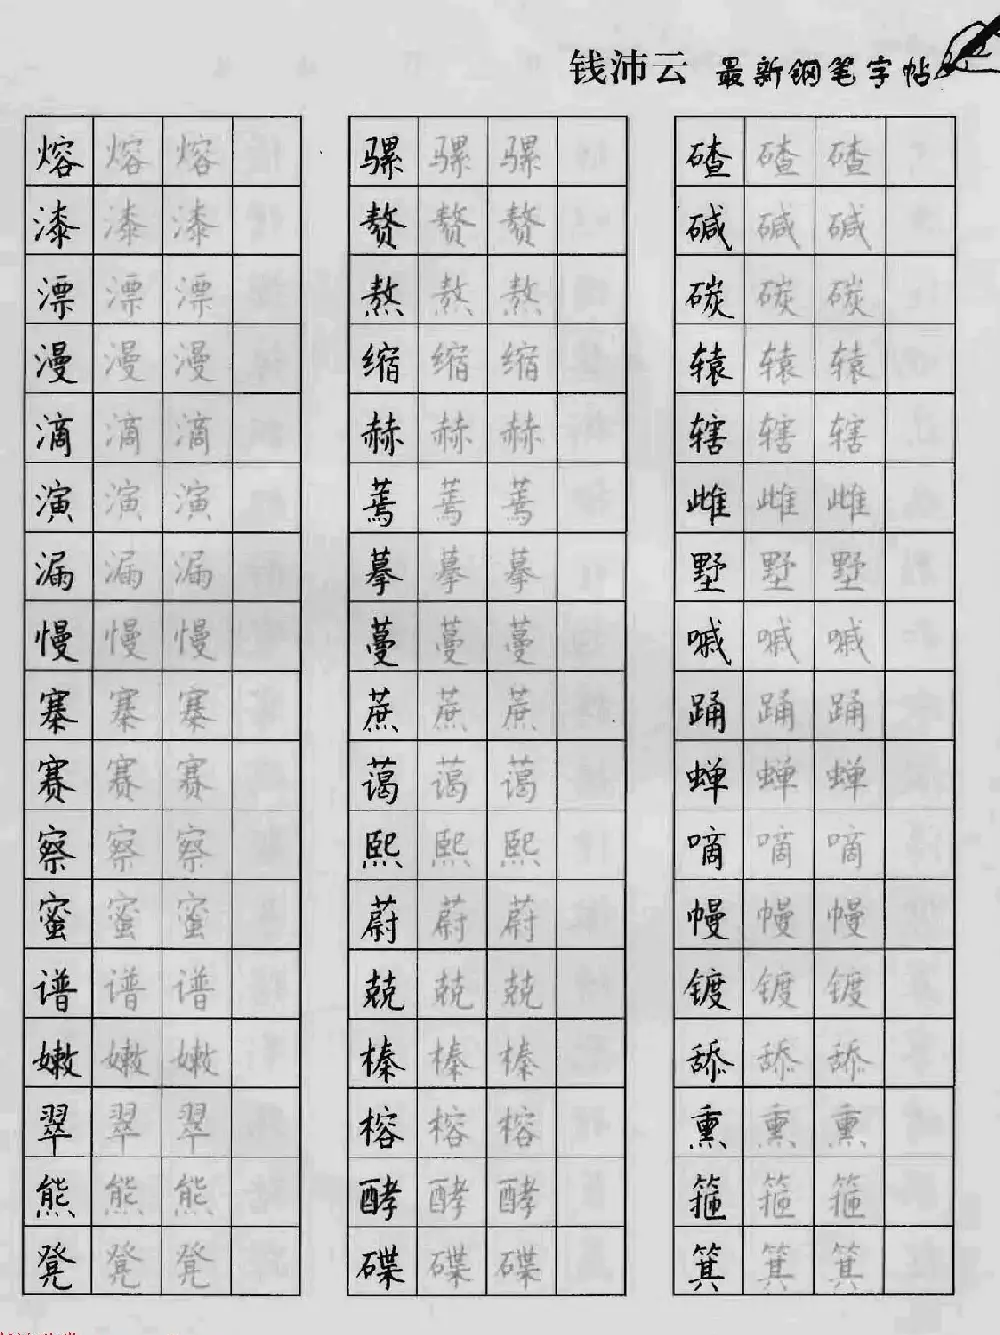 钱沛云 最新钢笔字帖
熔 熔 熔 骡 骡 骡 碴 碴 碴
漆 漆 漆 赘 赘 赘 碱 碱 碱
漂 漂 漂 熬 熬 熬 碳 碳 碳
漫 漫 漫 缩 缩 缩 辕 辕 辕
滴 滴 滴 赫 赫 赫 辖 辖 辖
演 演 演 蔫 蔫 蔫 雌 雌 雌
漏 漏 漏 摹 摹 摹 墅 墅 墅
慢 慢 慢 蔓 蔓 蔓 嘁 嘁 嘁
寨 寨 寨 蔗 蔗 蔗 踊 踊 踊
赛 赛 赛 蔼 蔼 蔼 蝉 蝉 蝉
察 察 察 熙 熙 熙 嘀 嘀 嘀
蜜 蜜 蜜 蔚 蔚 蔚 幔 幔 幔
谱 谱 谱 兢 兢 兢 镀 镀 镀
嫩 嫩 嫩 榛 榛 榛 舔 舔 舔
翠 翠 翠 榕 榕 榕 熏 熏 熏
熊 熊 熊 酵 酵 酵 箍 箍 箍
凳 凳 凳 碟 碟 碟 箕 箕 箕